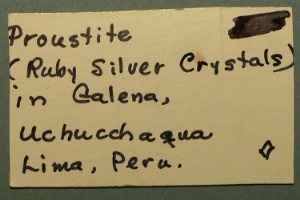 Proustite
(Ruby Silver Crystals)
in Galena,
Uchucchaqua
Lima, Peru.